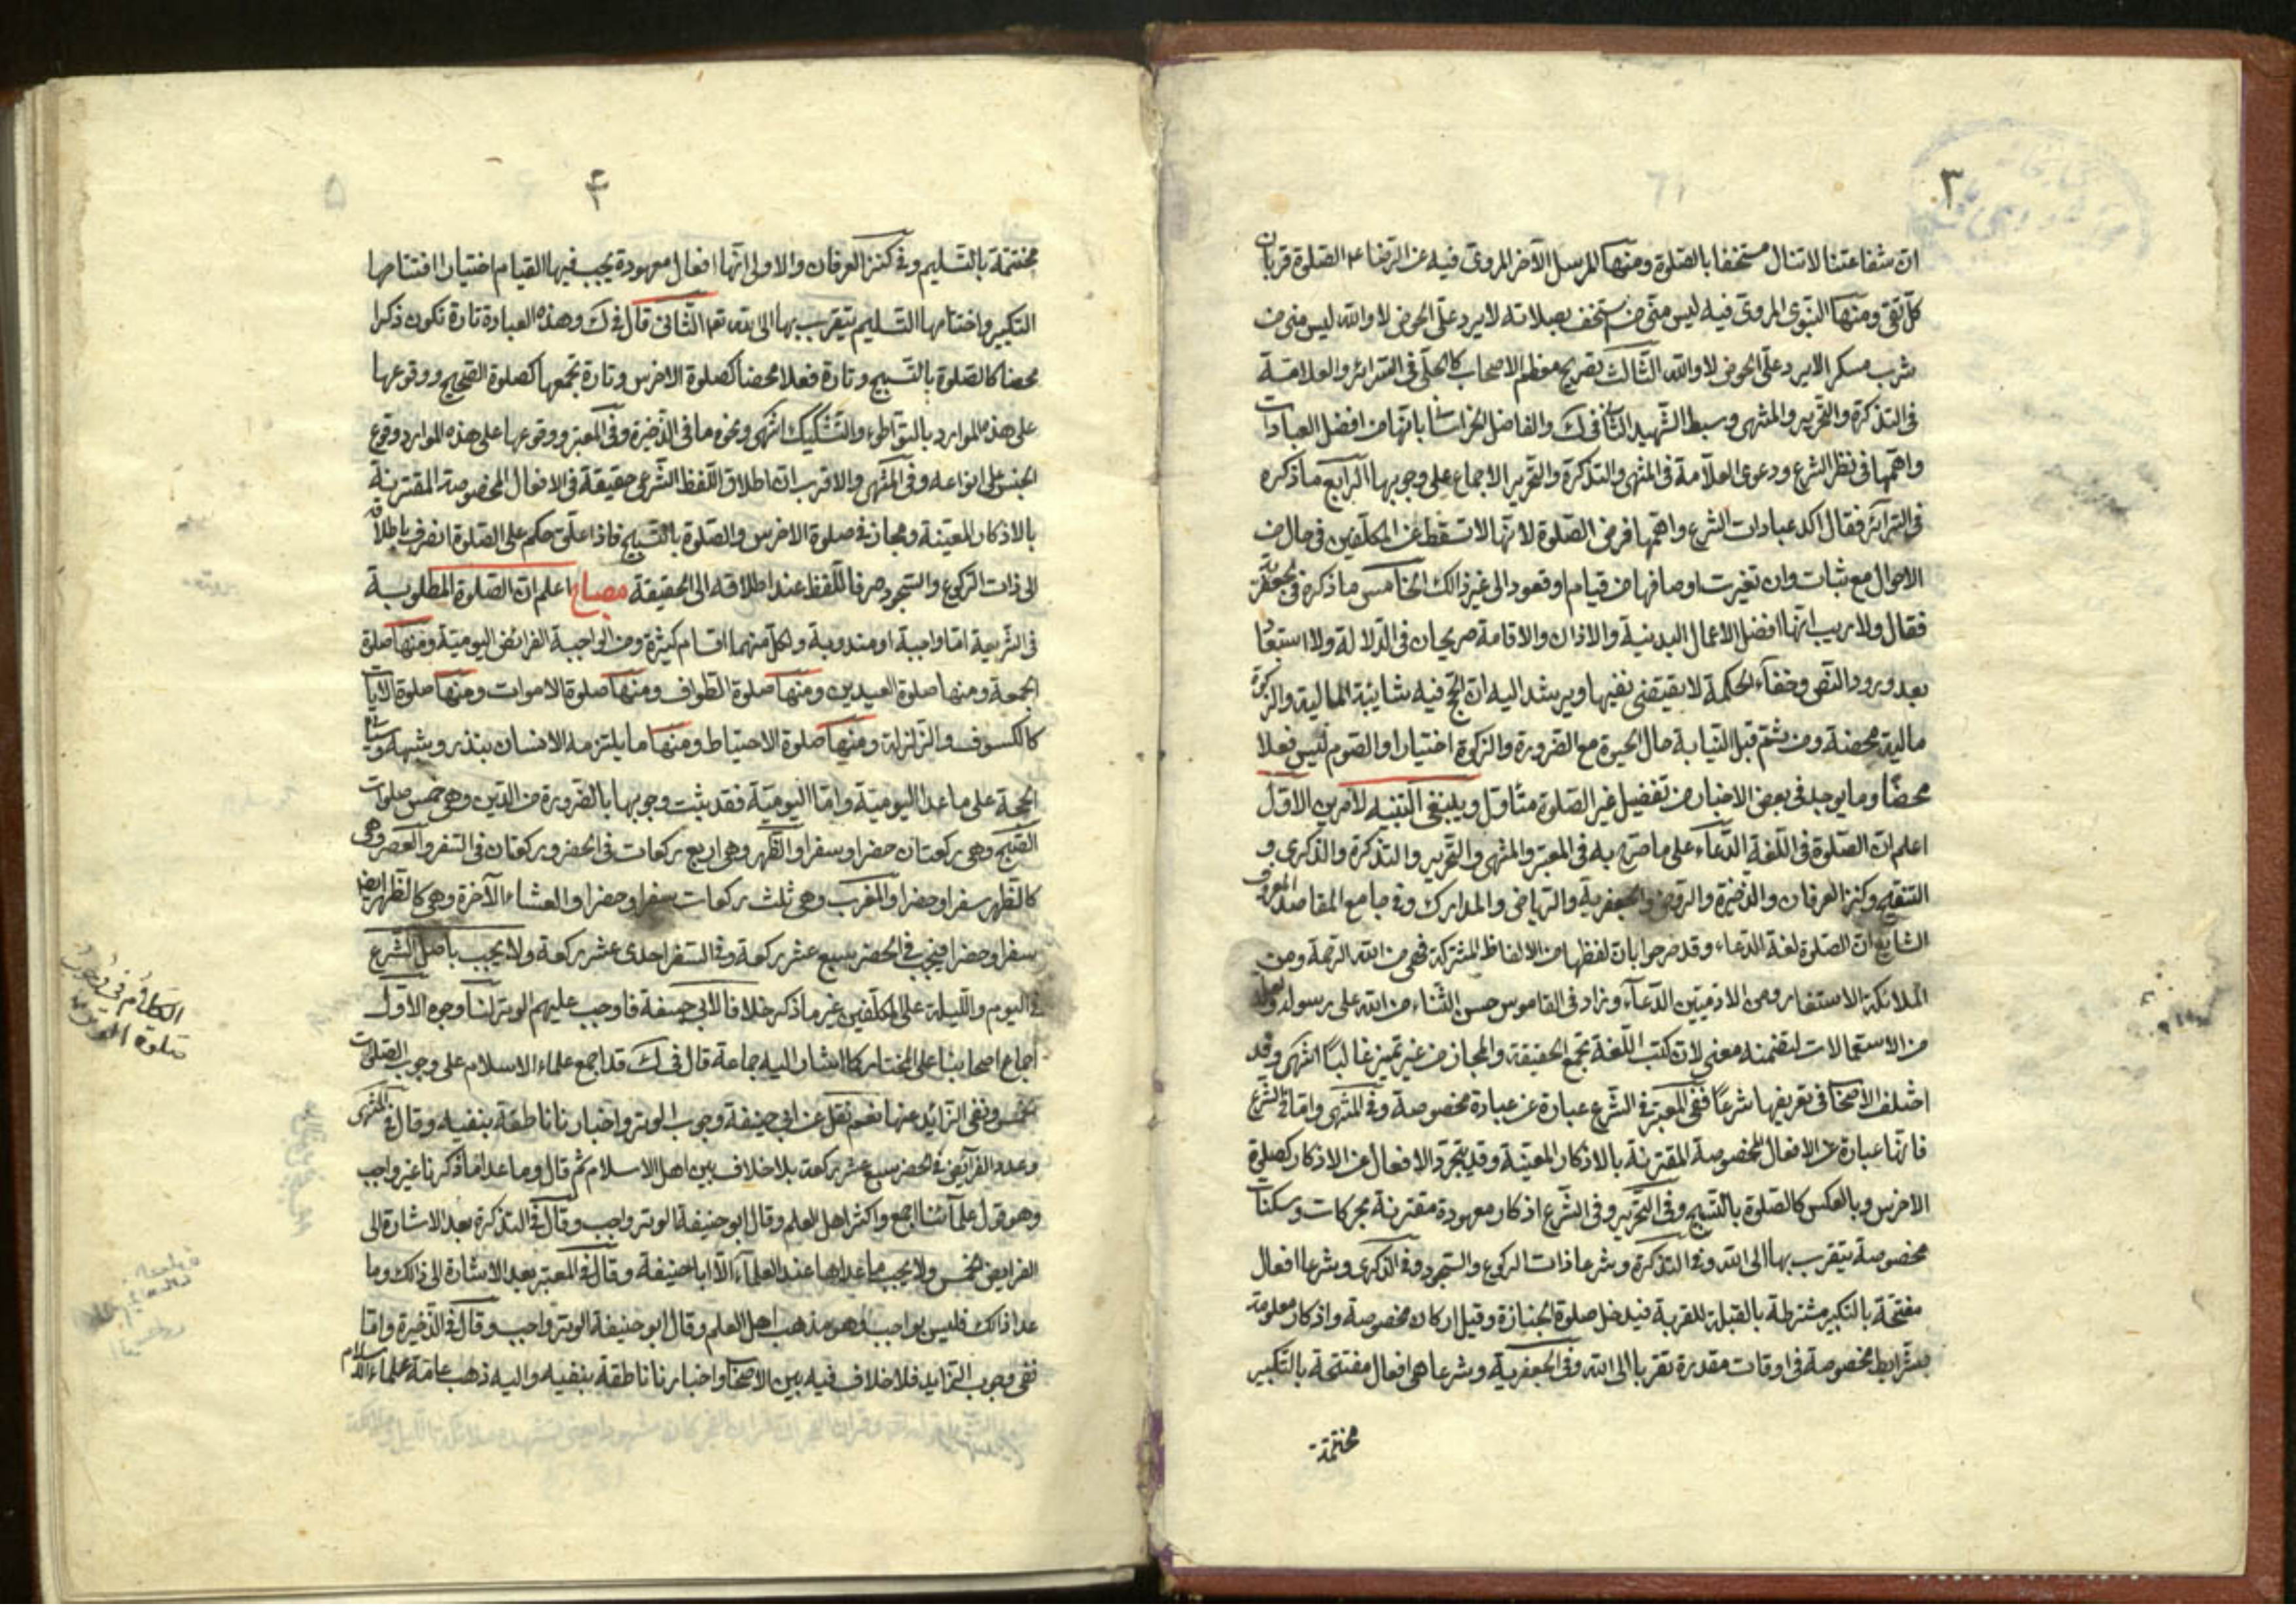 ٣
ان شفاعتنا لا تنال مستخفا بالصلوة ومنها المرسل الآخر المروى فيه عن الرضا ع الصلوة قربان
كل تقى ومنها النبوى المروى فيه ليس منى من استخف بصلاته لا يرد على الحوض لا والله ليس منى من
شرب مسكر الا يرد على الحوض لا والله الثالث تصريح معظم الاصحاب كالحلى فى السرائر والعلامة
فى التذكرة والتحرير والمنتهى وسبط الشهيد الثانى فى ك والفاضل الخراسانى بانها من افضل العبادات
واهمها فى نظر الشرع ودعوى العلامة فى المنتهى والتذكرة والتحرير الاجماع على وجوبها الرابع ما ذكره
فى السرائر فقال اكد عبادات الشرع واهمها فرض الصلوة لانها لا تسقط عن المكلفين فى حال من
الاحوال مع ثبات وان تغيرت اوصافها من قيام او قعود الى غير ذلك الخامس ما ذكره فى الجعفرية
فقال ولا ريب انها افضل الاعمال البدنية والاذان والاقامة صريحان فى الدلالة ولا استبعاد
بعد ورود النص وخفاء الحكمة لا يقتضى نفيها ويرشد اليه ان الحج فيه شايبة المالية والزكوة
مالية محضة ومن ثم قبل النيابة حال الحيوة مع الضرورة والزكوة اختيارا والصوم ليس فعلا
محضا وما يوجد فى بعض الاخبار من تفضيل غير الصلوة متأول وينبغى التنبيه لامرين الاول
اعلم ان الصلوة فى اللغة الدعاء على ما صرح به فى المعتبر والمنتهى والتحرير والتذكرة والذكرى و
التنقيح وكنز العرفان والذخيرة والروض والجعفرية والرياض والمدارك وفى جامع المقاصد المعروف
الشايع ان الصلوة لغة الدعاء وقد صرحوا بان لفظها من الالفاظ المشتركة فهى من الله الرحمة ومن
الملائكة الاستغفار ومن الادميين الدعاء وزاد فى القاموس حسن الثناء من الله على رسوله
من الاستعمالات لتضمنه معنى لان كتب اللغة تجمع الحقيقة والمجاز من غير تميز غالبا انتهى وقد
اختلف الاصحاب فى تعريفها شرعا ففى المعتبر فى الشرع عبارة عن عبادة مخصوصة وفى المنتهى واما فى الشرع
فانها عبارة عن الافعال المخصوصة المقترنة بالاذكار المعينة وقد يتجرد الافعال عن الاذكار كصلوة
الاخرس وبالعكس كالصلوة بالتسبيح وفى التحرير وفى الشرع اذكار معهودة مقترنة بحركات وسكنات
مخصوصة يتقرب بها الى الله وفى التذكرة وشرعا ذات الركوع والسجود وفى الذكرى وشرعا افعال
مفتتحة بالتكبير مشترطة بالقبلة للقربة فيدخل صلوة الجنازة وقيل اركان مخصوصة واذكار معلومة
بشرايط مخصوصة فى اوقات مقدرة تقربا الى الله وفى الجعفرية وشرعا هى افعال مفتتحة بالتكبير
مختتمة
۴
مختتمة بالتسليم وفى كنز العرفان والاولى انها افعال معهودة يجب فيها القيام اختيارا افتتاحها
التكبير واختتامها التسليم يتقرب بها الى الله تعم الثانى قال فى ك وهذه العبادة تارة تكون ذكرا
محضا كالصلوة بالتسبيح وتارة فعلا محضا كصلوة الاخرس وتارة تجمعها كصلوة الصحيح ووقوعها
على هذه الموارد بالتواطوء والتشكيك انتهى ونحوه ما فى الذخيرة وفى المعتبر ووقوعها على هذه الموارد وقوع
الجنس على انواعه وفى المنتهى والاقرب ان اطلاق اللفظ الشرعى حقيقة فى الافعال المخصوصة المقترنة
بالاذكار المعينة ومجاز فى صلوة الاخرس والصلوة بالتسبيح فاذا علق حكم على الصلوة انصرف باطلاقه
الى ذات الركوع والسجود صرفا للفظ عند اطلاقه الى الحقيقة مصباح اعلم ان الصلوة المطلوبة
فى الشريعة اما واجبة او مندوبة ولكل منهما اقسام كثيرة ومن الواجبة الفرائض اليومية ومنها صلوة
الجمعة ومنها صلوة العيدين ومنها صلوة الطواف ومنها صلوة الاموات ومنها صلوة الايات
كالكسوف والزلزلة ومنها صلوة الاحتياط ومنها ما يلتزمه الانسان بنذر وشبهه
الحجة على ما عدا اليومية واما اليومية فقد ثبت وجوبها بالضرورة من الدين وهى خمس صلوات
الصبح وهى ركعتان حضرا وسفرا والظهر وهى اربع ركعات فى الحضر وركعتان فى السفر والعصر وهى
كالظهر سفرا وحضرا والمغرب وهى ثلث ركعات سفرا وحضرا والعشاء الآخرة وهى كالظهر ايضا
سفرا وحضرا فيجب فى الحضر سبع عشر ركعة وفى السفر احدى عشر ركعة ولا يجب باصل الشرع
فى اليوم والليلة على المكلفين غير ما ذكر خلافا لابى حنيفة فاوجب عليهم الوتر لنا وجوه الاول
اجماع اصحابنا على المختار كما اشار اليه جماعة قال فى ك قد اجمع علماء الاسلام على وجوب الصلوات
الخمس ونفى الزائد عنها نعم نقل عن ابى حنيفة وجوب الوتر واخبارنا ناطقة بنفيه وقال فى المنتهى
وعدد الفرايض فى الحضر سبع عشر ركعة بلا خلاف بين اهل الاسلام ثم قال وما عدا ما ذكرنا غير واجب
وهو قول علمائنا اجمع واكثر اهل العلم وقال ابو حنيفة الوتر واجب وقال فى التذكرة بعد الاشارة الى
الفرايض الخمس ولا يجب ما عداها عند العلماء الا ابا حنيفة وقال فى المعتبر بعد الاشارة الى ذالك وما
عدا ذلك فليس بواجب وهو مذهب اهل العلم وقال ابو حنيفة الوتر واجب وقال فى الذخيرة واما
نفى وجوب الزايد فلا خلاف فيه بين الاصحاب واخبارنا ناطقة بنفيه واليه ذهب عامة علماء الاسلام
الكلام فى وجوب
صلوة